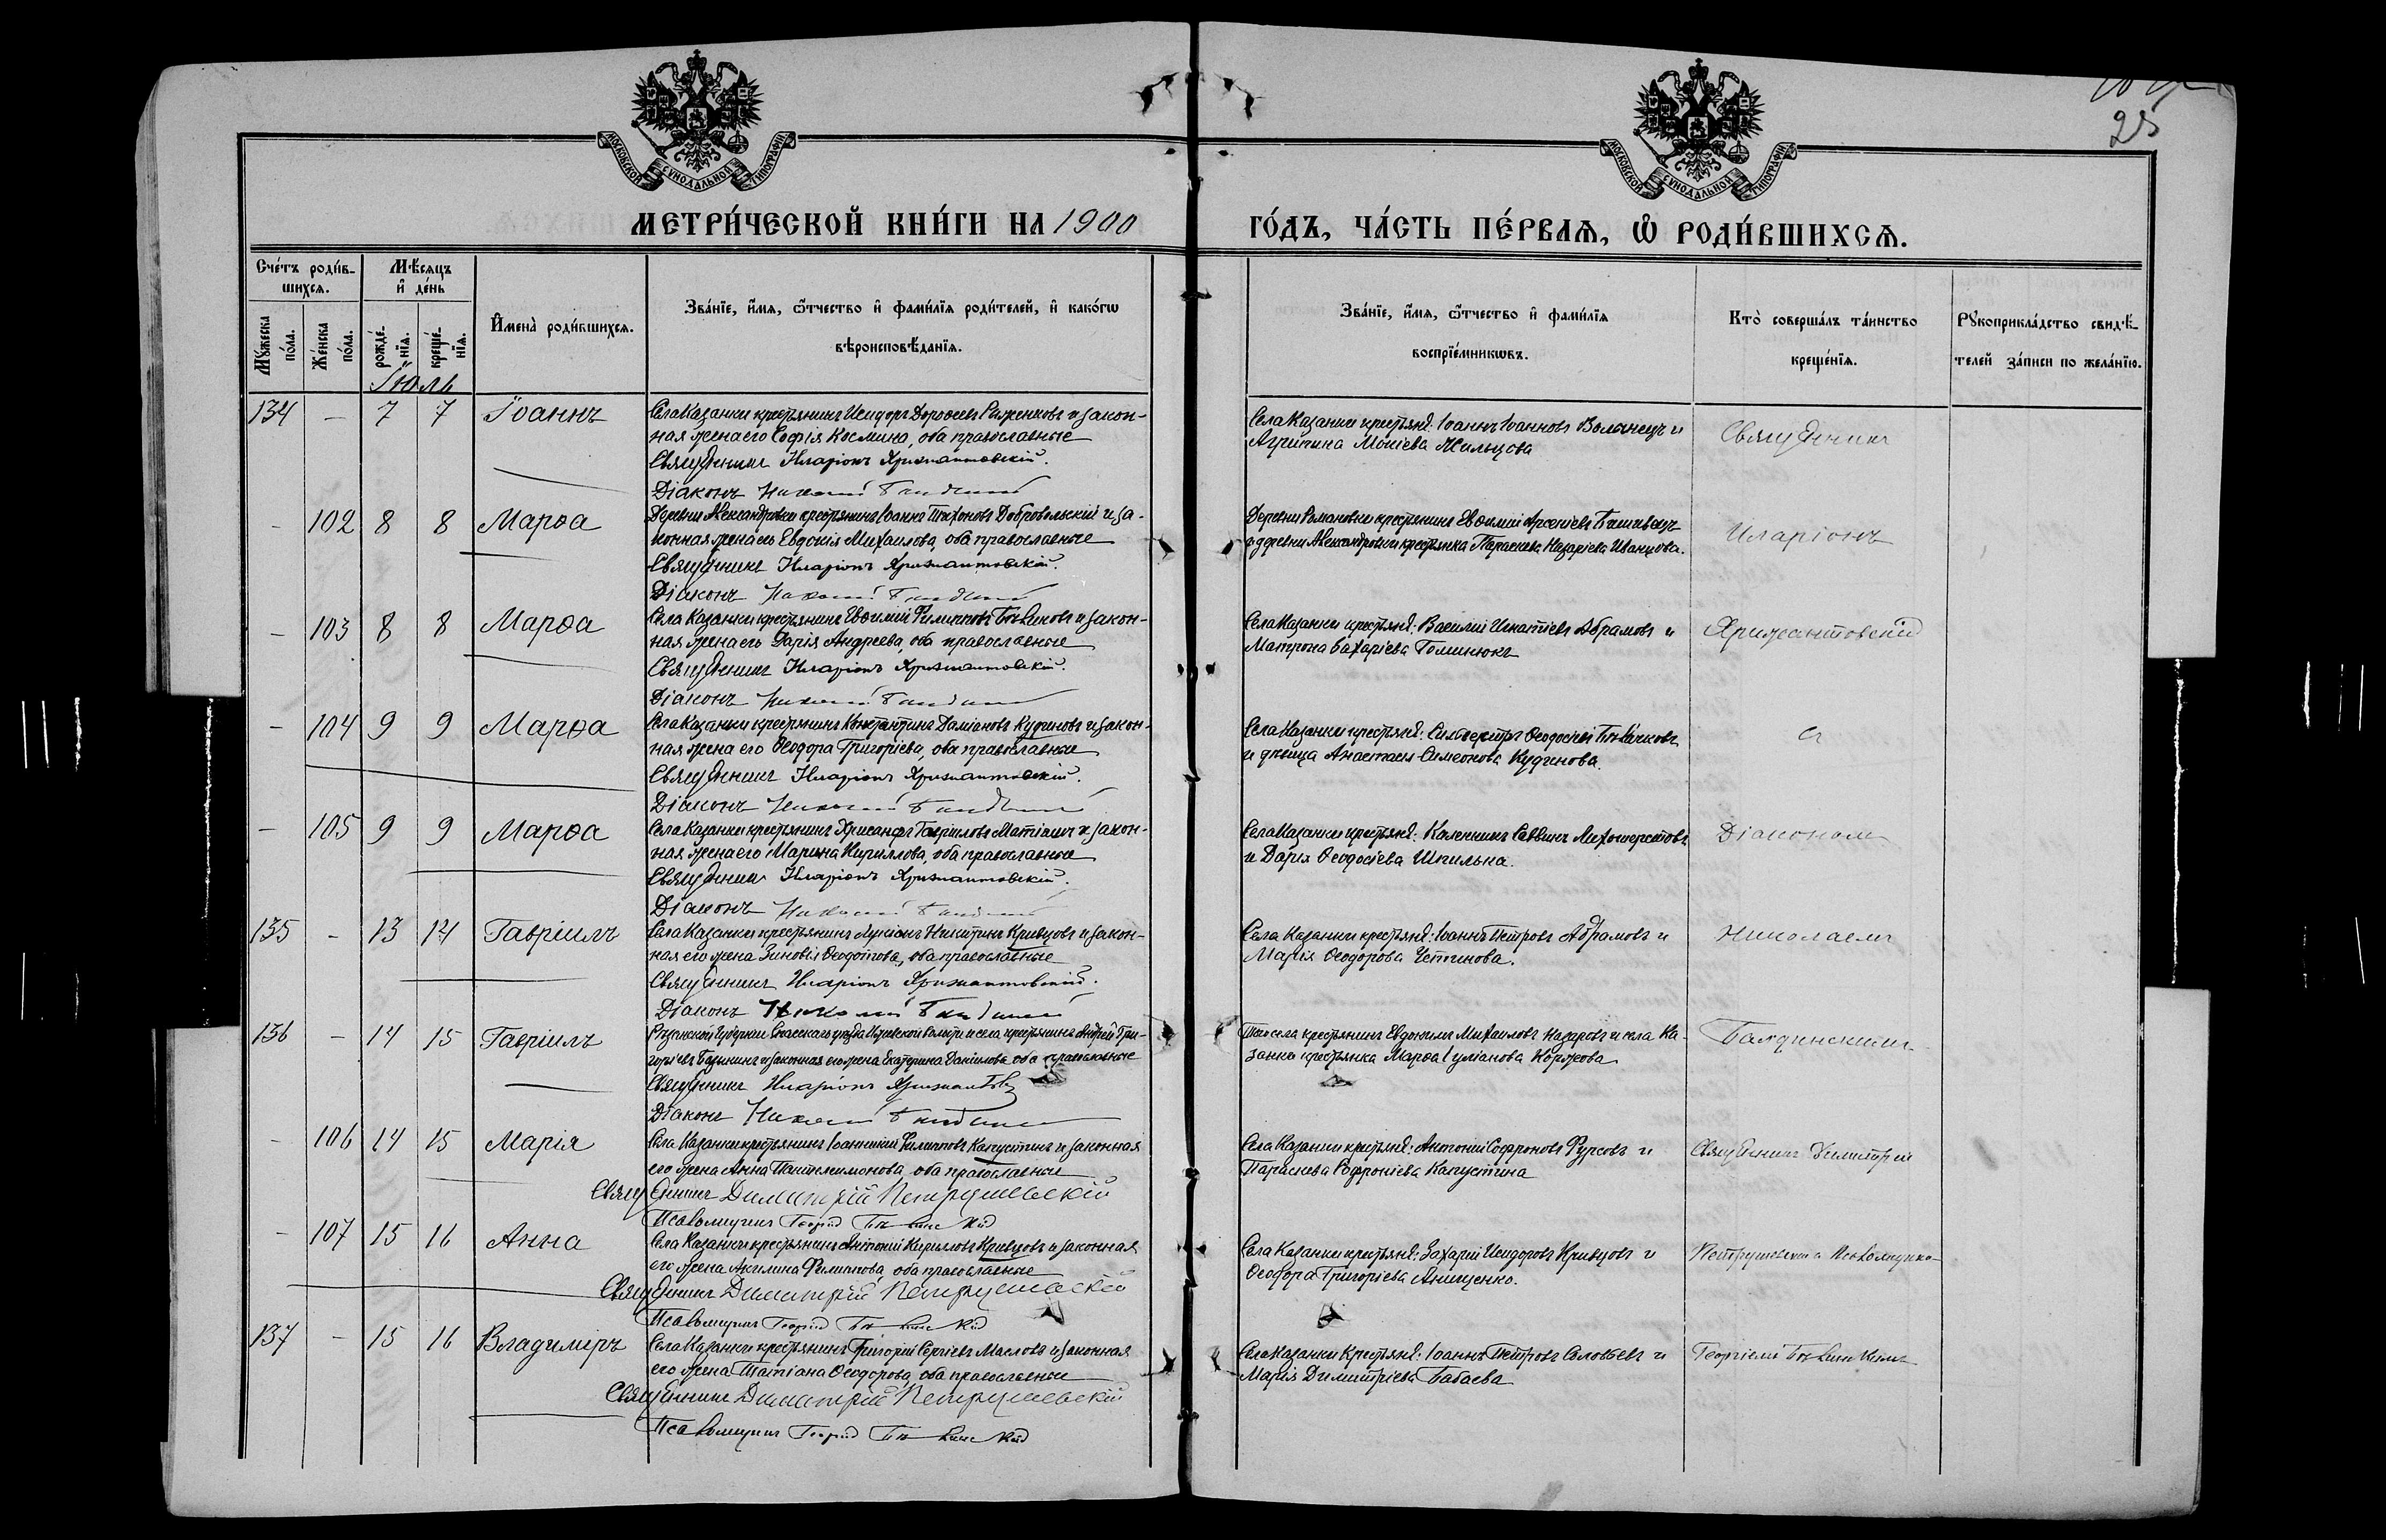 25
МОСКОВСКОЙ СѴНОДАЛЬНОЙ ТИПОГРАФІИ
МОСКОВСКОЙ СѴНОДАЛЬНОЙ ТИПОГРАФІИ
МЕТРИ́ЧЕСКОЙ КНИ́ГИ НА 1900
ГО́ДЪ, ЧА́СТЬ ПЕ́РВАѦ, Ѡ РОДИ́ВШИХСѦ.
Сче́тъ роди́в-
шихсѧ.
Мꙋ́жеска по́ла.
Же́нска по́ла.
Мѣ́сѧцъ
и де́нь
рожде́-
нїѧ.
креще́-
нїѧ.
Имена̀ роди́вшихсѧ.
Зва́нїе, и́мѧ, ѻ҆́тчество и фами́лїѧ роди́телей, и како́гѡ
вѣроисповѣ́данїѧ.
Зва́нїе, и́мѧ, ѻ҆́тчество и фами́лїѧ
воспрїе́мникѡвъ.
Кто̀ соверша́лъ та́инство
креще́нїѧ.
Рꙋкоприкла́дство свидѣ́-
телей за́писи по жела́нїю.
Іюль
134 — 7 7 Іоаннъ
Села Казанки крестьянинъ Исидоръ Дороѳеевъ и закон-
ная жена его Софія Космина, оба православные
Священникъ Иларіонъ Хрисантовскій.
Діаконъ Николай
Села Казанки крестьяне: Іоаннъ Іоанновъ Воланецъ и
Агрипина Моисіева Жильцова
Священникъ
— 102 8 8 Марѳа
Деревни Александровки крестьянинъ Іоаннъ Тихоновъ Добровольскій и за-
конная жена его Евдокія Михаилова, оба православные
Священникъ Иларіонъ Хрисантовскій.
Діаконъ Николай
Деревни Романовки крестьянинъ Евѳимій Арсеніевъ
и деревни Александровки крестьянка Параскева Назаріева Иванцова.
Иларіонъ
— 103 8 8 Марѳа
Села Казанки крестьянинъ Евѳимій Филипповъ Бѣликовъ и закон-
ная жена его Дарія Андреева, оба православные
Священникъ Иларіонъ Хрисантовскій.
Діаконъ Николай
Села Казанки крестьяне: Василій Игнатіевъ Абрамовъ и
Матрона Захаріева Гоминюкъ
Хрисантовскій
— 104 9 9 Марѳа
Села Казанки крестьянинъ Константинъ Даміановъ Кудиновъ и закон-
ная жена его Ѳеодора Григоріева, оба православные
Священникъ Иларіонъ Хрисантовскій.
Діаконъ Николай
Села Казанки крестьяне: Силвестръ Ѳеодосіевъ
и дѣвица Анастасія Симеонова Кудинова.
съ
— 105 9 9 Марѳа
Села Казанки крестьянинъ Хрисанфъ Гавріиловъ Матіашъ и закон-
ная жена его Марина Кириллова, оба православные
Священникъ Иларіонъ Хрисантовскій.
Діаконъ Николай
Села Казанки крестьяне: Каленникъ Саввинъ
и Дарія Ѳеодосіева Шпилька.
Діакономъ
135 — 13 14 Гавріилъ
Села Казанки крестьянинъ Лукіанъ Никитинъ Кривцовъ и закон-
ная его жена Зиновія Ѳеодотова, оба православные
Священникъ Иларіонъ Хрисантовскій.
Діаконъ Николай
Села Казанки крестьяне: Іоаннъ Петровъ Абрамовъ и
Марія Ѳеодорова Устинова.
Николаемъ
136 — 14 15 Гавріилъ
Рязанской Губерніи Спасскаго уѣзда Ижевской волости и села крестьянинъ Андрей Гри-
горіевъ и законная его жена Екатерина Даніилова оба православные
Священникъ Иларіонъ
Діаконъ Николай
Того села крестьянинъ Евдокимъ Михаиловъ Назаровъ и села Ка-
занки крестьянка Марѳа Іуліанова Коржова
— 106 14 15 Марія
Села Казанки крестьянинъ Іоанникій Филипповъ Капустинъ и законная
его жена Анна Пантелимонова, оба православные
Священникъ Димитрій Петрушевскій
Псаломщикъ Георгій
Села Казанки крестьяне: Антоній Софроновъ Фурсовъ и
Параскева Софроніева Капустина
Священникъ Димитрій
— 107 15 16 Анна
Села Казанки крестьянинъ Антоній Кириловъ Кривцовъ и законная
его жена Акилина Филиппова, оба православные
Священникъ Димитрій Петрушевскій
Псаломщикъ Георгій
Села Казанки крестьяне: Захарій Исидоровъ Кривцовъ и
Ѳеодора Григоріева Анищенко.
Петрушевскій съ Псаломщико-
137 — 15 16 Владиміръ
Села Казанки крестьянинъ Григорій Сергіевъ Масловъ и законная
его жена Татіана Ѳеодорова, оба православные
Священникъ Димитрій Петрушевскій
Псаломщикъ Георгій
Села Казанки Крестьяне: Іоаннъ Петровъ Соловьевъ и
Марія Димитріева Бабаева
Георгіемъ